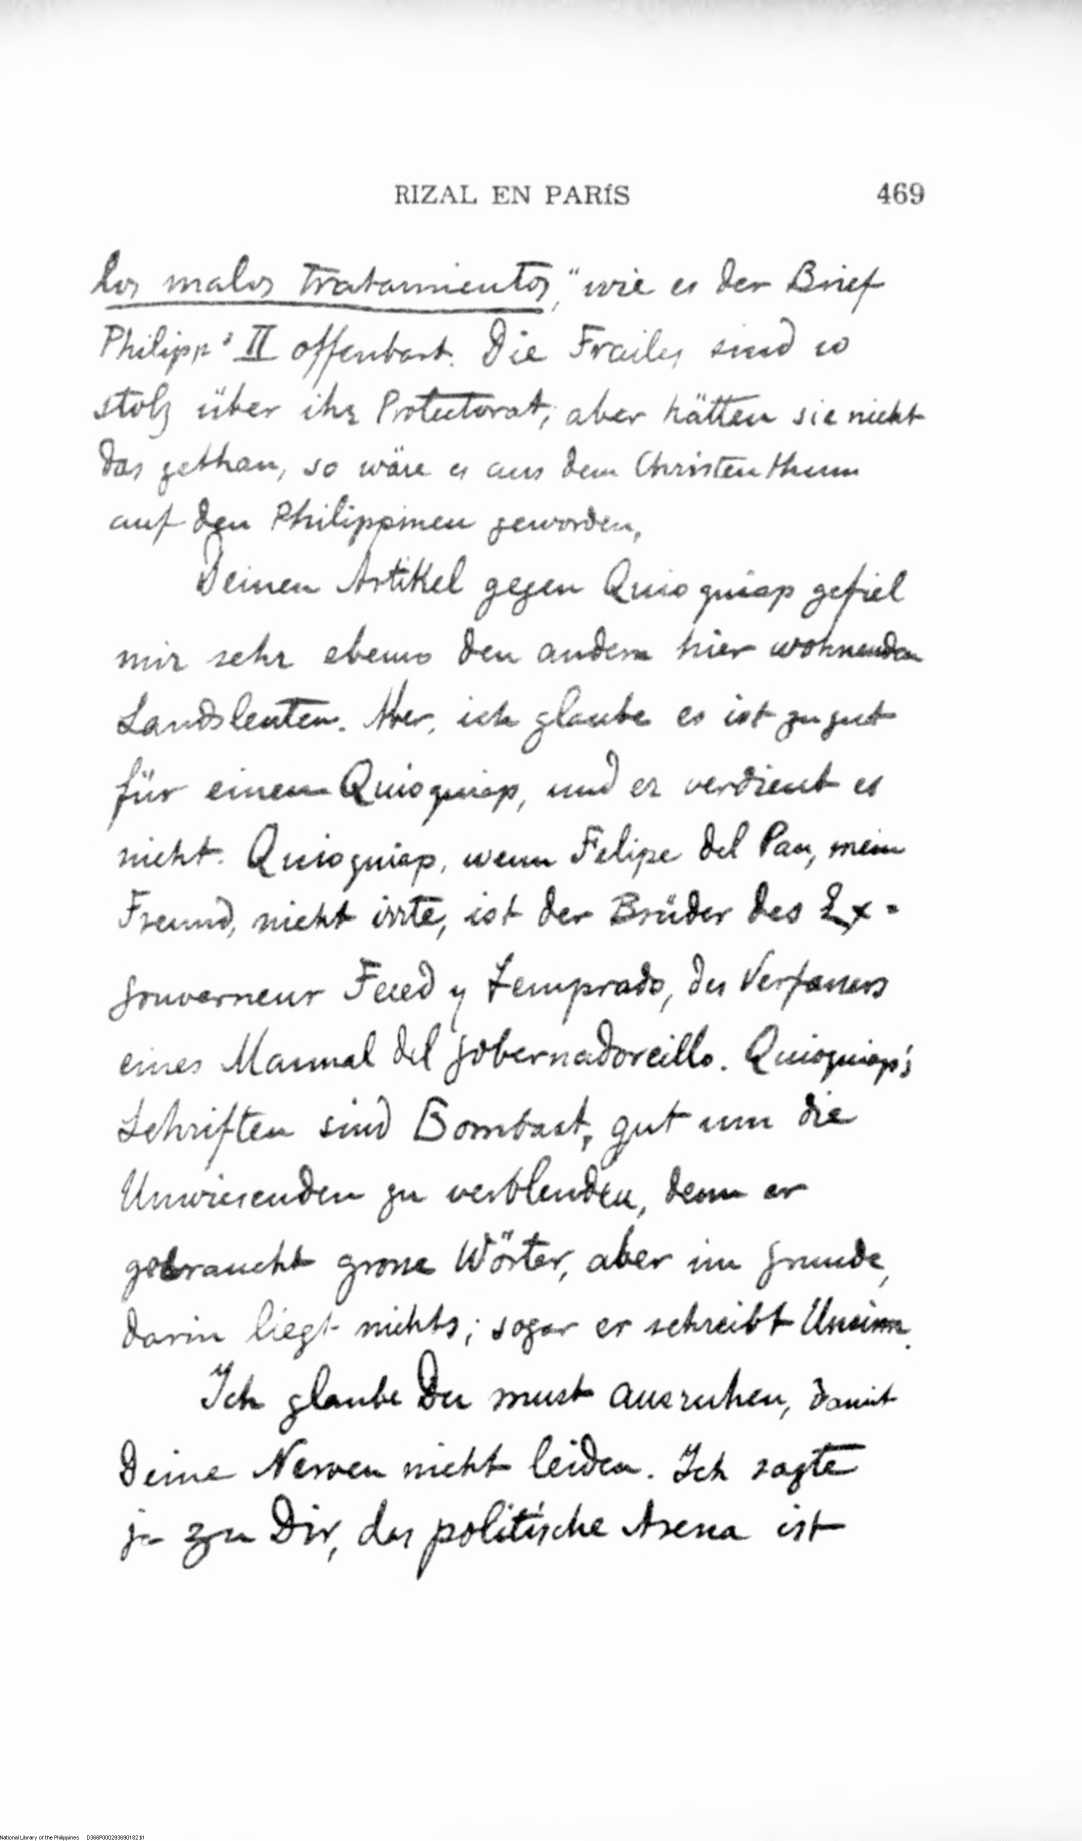 RIZAL EN PARÍS 469
los malos tratamientos," wie es der Brief
Philipp's II offenbart. Die Frailes sind so
stolz über ihr Protectorat; aber hätten sie nicht
das gethan, so wäre es aus dem Christenthum
auf den Philippinen geworden,
Deinen Artikel gegen Quioquiap gefiel
mir sehr ebenso den andern hier wohnenden
Landsleuten. Aber, ich glaube es ist zu gut
für einem Quioquiap, und er verdient es
nicht. Quioquiap, wenn Felipe del Pan, mein
Freund, nicht irrte, ist der Brüder des Ex=
gouverneur Feced y Temprado, des Verfassers
eines Manual del gobernadorcillo. Quioquiap's
Schriften sind Bombast, gut um die
Unwissenden zu verblenden, denn er
gebraucht grosse Wörter, aber im grunde,
darin liegt nichts; sogar er schreibt Unsinn.
Ich glaube Du must ausruhen, damit
Deine Nerven nicht leiden. Ich sagte
ja zu Dir, das politische Arena ist
National Library of the Philippines